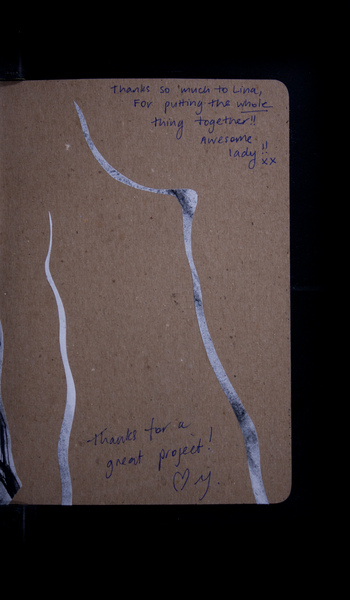 Thanks so much to Lina,
For putting the whole
thing together!!
Awesome
lady!!
xx
Thanks for a
great project!
♡ y.